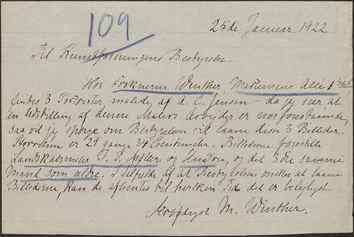 109
25de Januar 1922.
Til Kunstforeningens Bestyrelse.
Hos Frøknerne Winther
findes 3 Portræter malede af C. A. Jensen - da jeg ser at
en Udstilling af denne Malers Arbejder er nær forestaaende,
saa vil jeg spørge om Bestyrelsen vil laane disse 3 Billeder.
er 29 gange 24 Centimeter. Billederne forestiller
Landskabsmaler J. P. Møller og Hustru, og det 3die
Mand som ældre. I Tilfælde af at Bestyrelsen ønsker at laane
Billederne, kan de afhentes til hvilken Tid det er belejligt.
Ærbødigst M. Winther.